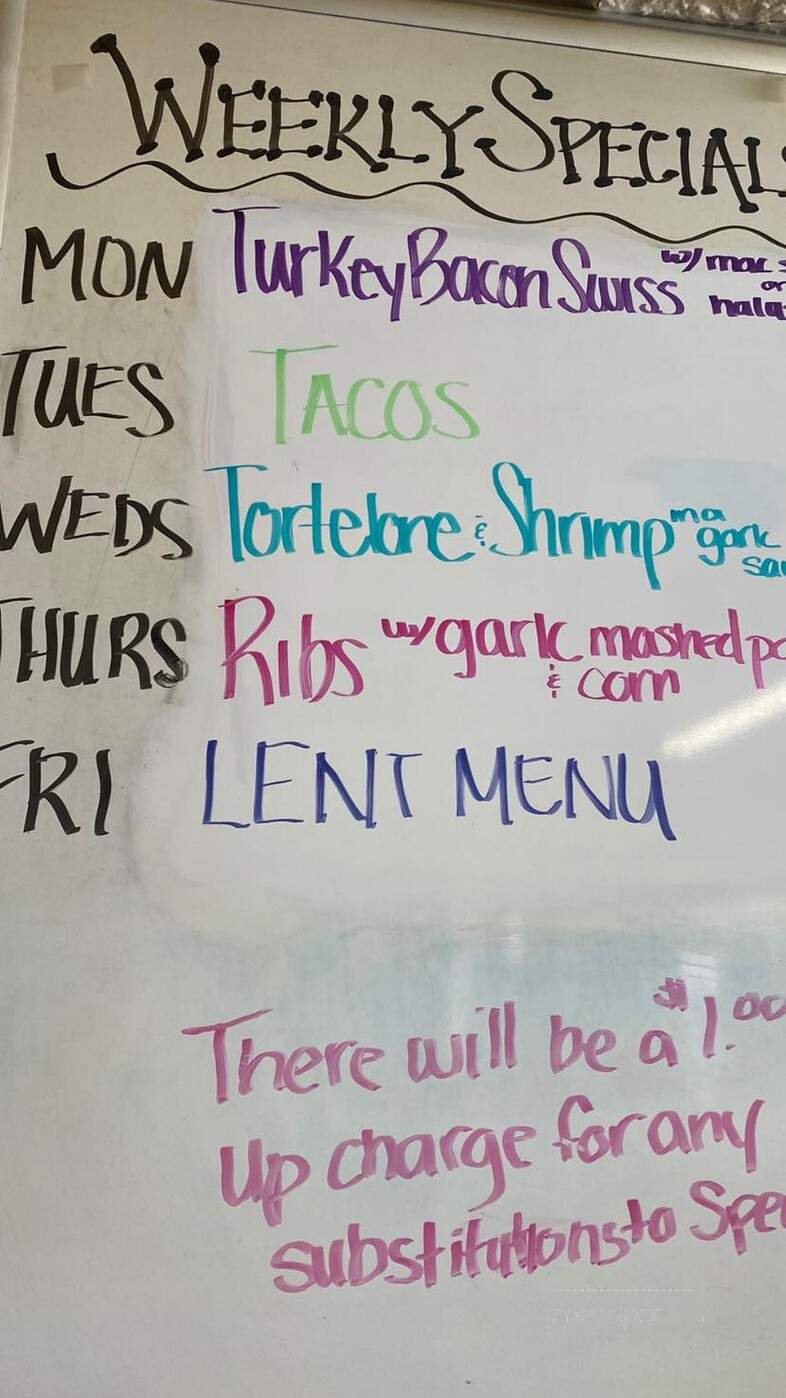 WEEKLY SPECIALS
MON Turkey Bacon Swiss w/ mac s
or
TUES TACOS
WEDS Tortelone & Shrimp in a
garlc
THURS Ribs w/ garlc mashed
& corn
FRI LENT MENU
There will be a $1.00
Up charge for any
substitutions to Spe